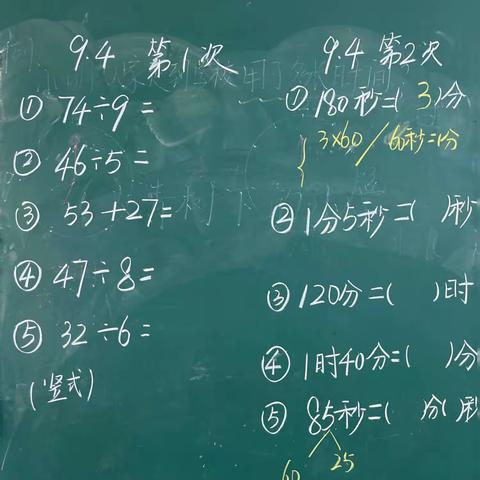 9.4 第1次
① 74÷9=
② 46÷5=
③ 53+27=
④ 47÷8=
⑤ 32÷6=
(竖式)
9.4 第2次
① 180秒=( 3 )分
3×60 / 60秒=1分
② 1分5秒=( )秒
③ 120分=( )时
④ 1时40分=( )分
⑤ 85秒=( )分( )秒
60 25